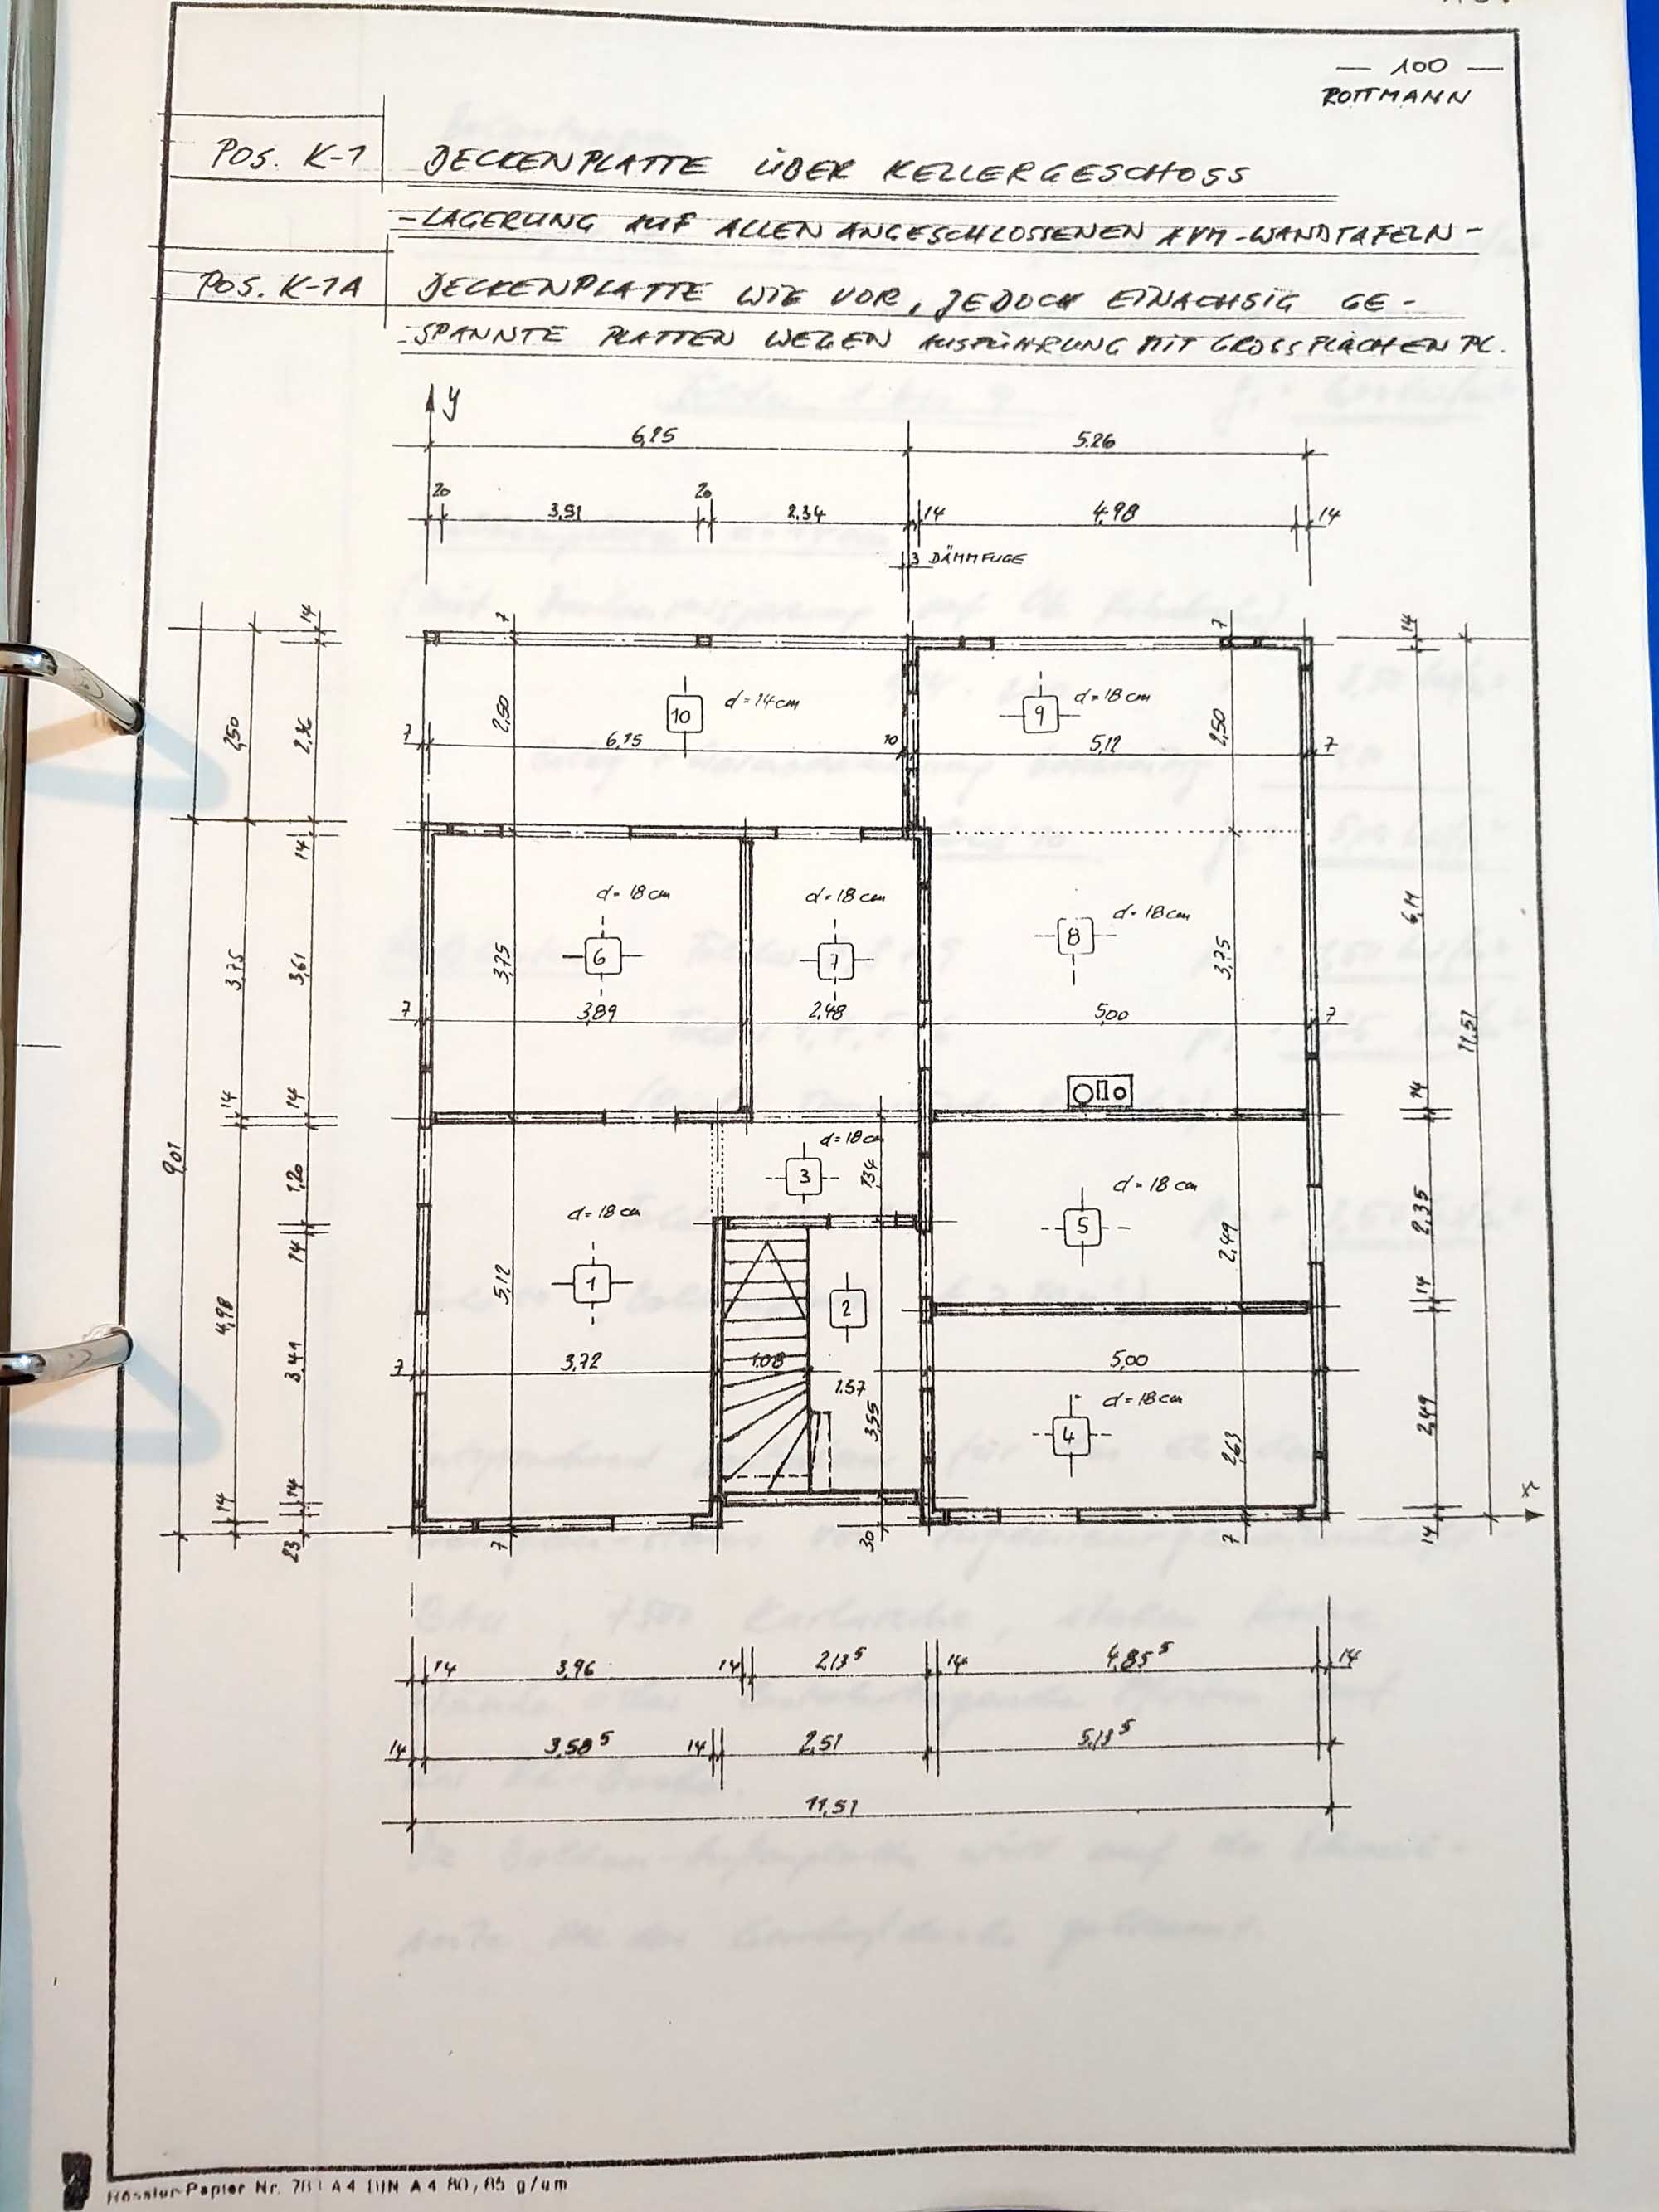 — 100 —
ROTTMANN
POS. K-1 DECKENPLATTE ÜBER KELLERGESCHOSS
- LAGERUNG AUF ALLEN ANGESCHLOSSENEN AVM-WANDTAFELN -
POS. K-1A DECKENPLATTE WIE VOR, JEDOCH EINACHSIG GE-
- SPANNTE PLATTEN WEGEN AUSFÜHRUNG MIT GROSSFLÄCHENPL.
y
6,25 5.26
20 3,91 20 2.34 14 4,98 14
3 DÄMMFUGE
14 7 7 14
2,50 2,36 2,50 10 d=14cm 9 d=18cm 2,50
7 6,15 10 5,12 7
14
d=18cm d=18cm d=18cm
3,75 3,61 3,75 6 7 8 3,75 6,11
7 3,89 2,48 5,00 7
11,51
14 14 14
9,01 1,20 d=18cm 3 1,34
d=18cm d=18cm 2,35
14 1 5,12 2 5 2,49 14
4,98 3,41 7 3,72 1.08 1.57 5,00
3,55 d=18cm 4 2,63 2,49
14 14 x
23 7 30 7 14
14 3,96 14 2,13⁵ 14 4,85⁵ 14
14 3,58⁵ 14 2,51 5,13⁵
11,51
Rössler-Papier Nr. 781 A4 DIN A 4 80/85 g/qm